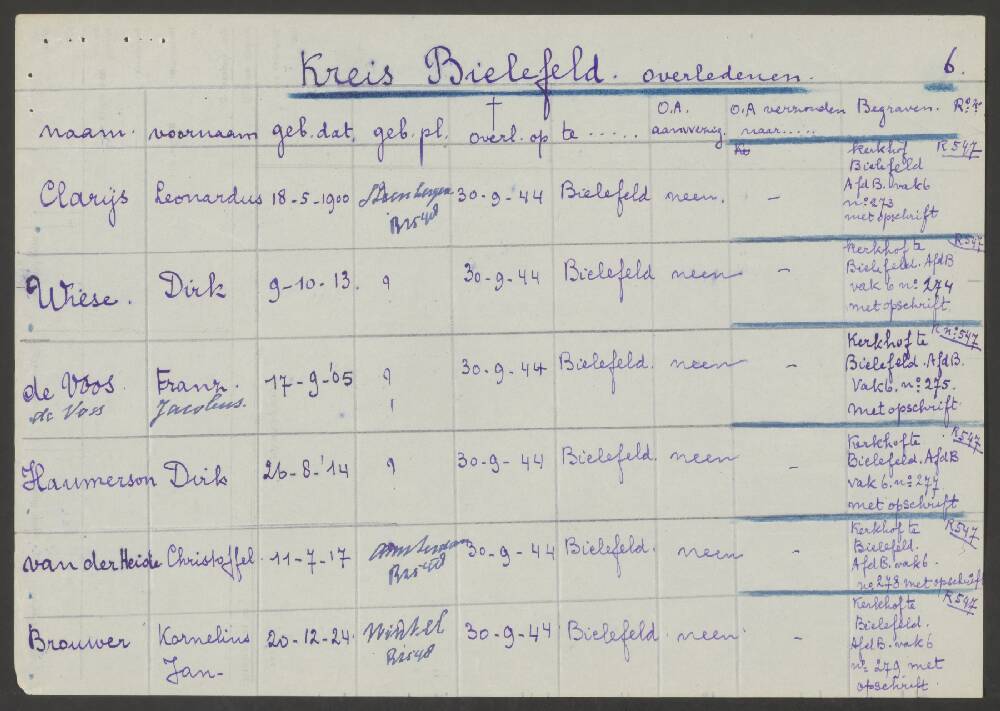 Kreis Bielefeld. overledenen. 6.
naam. voornaam geb. dat. geb. pl. † overl. op te ...... O.A. aanwezig. O.A verzonden naar..... Begraven. R.nr
Clarijs Leonardus 18-5-1900 Steenbergen 30-9-44 Bielefeld neen. -
R2548
Kerkhof R547
Bielefeld
Afd B. vak 6
no. 273
met opschrift
Wiese. Dirk 9-10-13. ? 30-9-44 Bielefeld neen -
Kerkhof te R547
Bielefeld. Afd B
vak 6 no. 274
met opschrift.
de Voos. Franz. 17-9-'05 ? 30-9-44 Bielefeld. neen -
de Voss Jacobus.
Kerkhof te R no. 547
Bielefeld. Afd B.
Vak 6. no. 275.
met opschrift.
Haumerson Dirk 26-8-'14 ? 30-9-44 Bielefeld. neen -
Kerkhof te R547
Bielefeld. Afd B
vak 6. no. 277
met opschrift
van der Heide Christoffel. 11-7-'17 Amsterdam 30-9-44 Bielefeld. neen -
R2548
Kerkhof te R547
Bielefeld.
Afd B. vak 6.
no. 278 met opschrift
Brouwer Kornelius 20-12-24. 30-9-44 Bielefeld. neen. -
Jan- R2548
Kerkhof te R547
Bielefeld.
Afd B. vak 6
no. 279 met
opschrift.